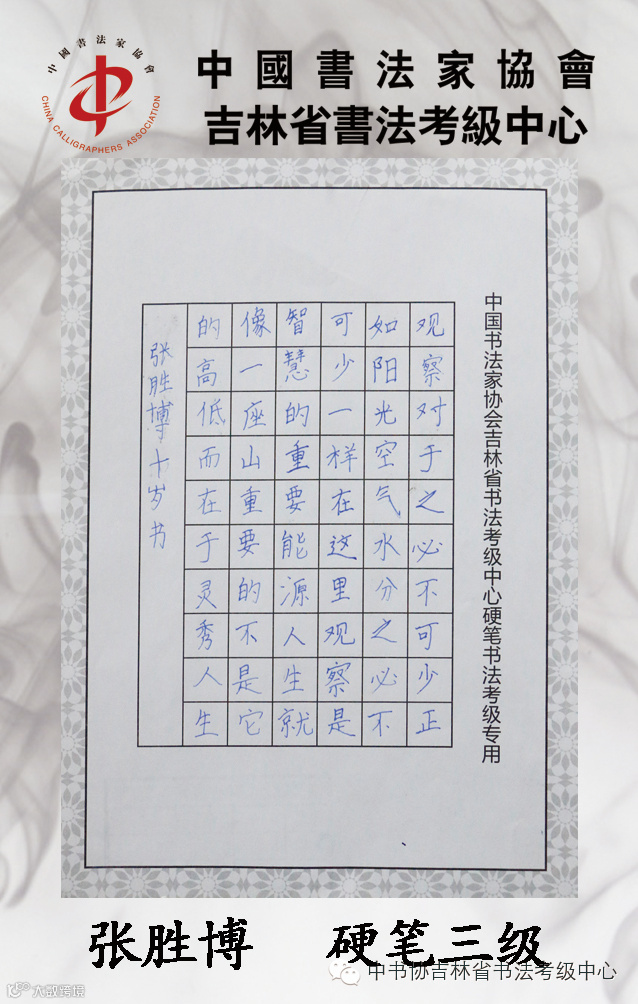 中國書法家協會
CHINA CALLIGRAPHERS ASSOCIATION
中國書法家協會
吉林省書法考級中心
中国书法家协会吉林省书法考级中心硬笔书法考级专用
观察对于之必不可少正
如阳光空气水分之必不
可少一样在这里观察是
智慧的重要能源人生就
像一座山重要的不是它
的高低而在于灵秀人生
张胜博十岁书
张胜博 硬笔三级
中书协吉林省书法考级中心
大数跨境